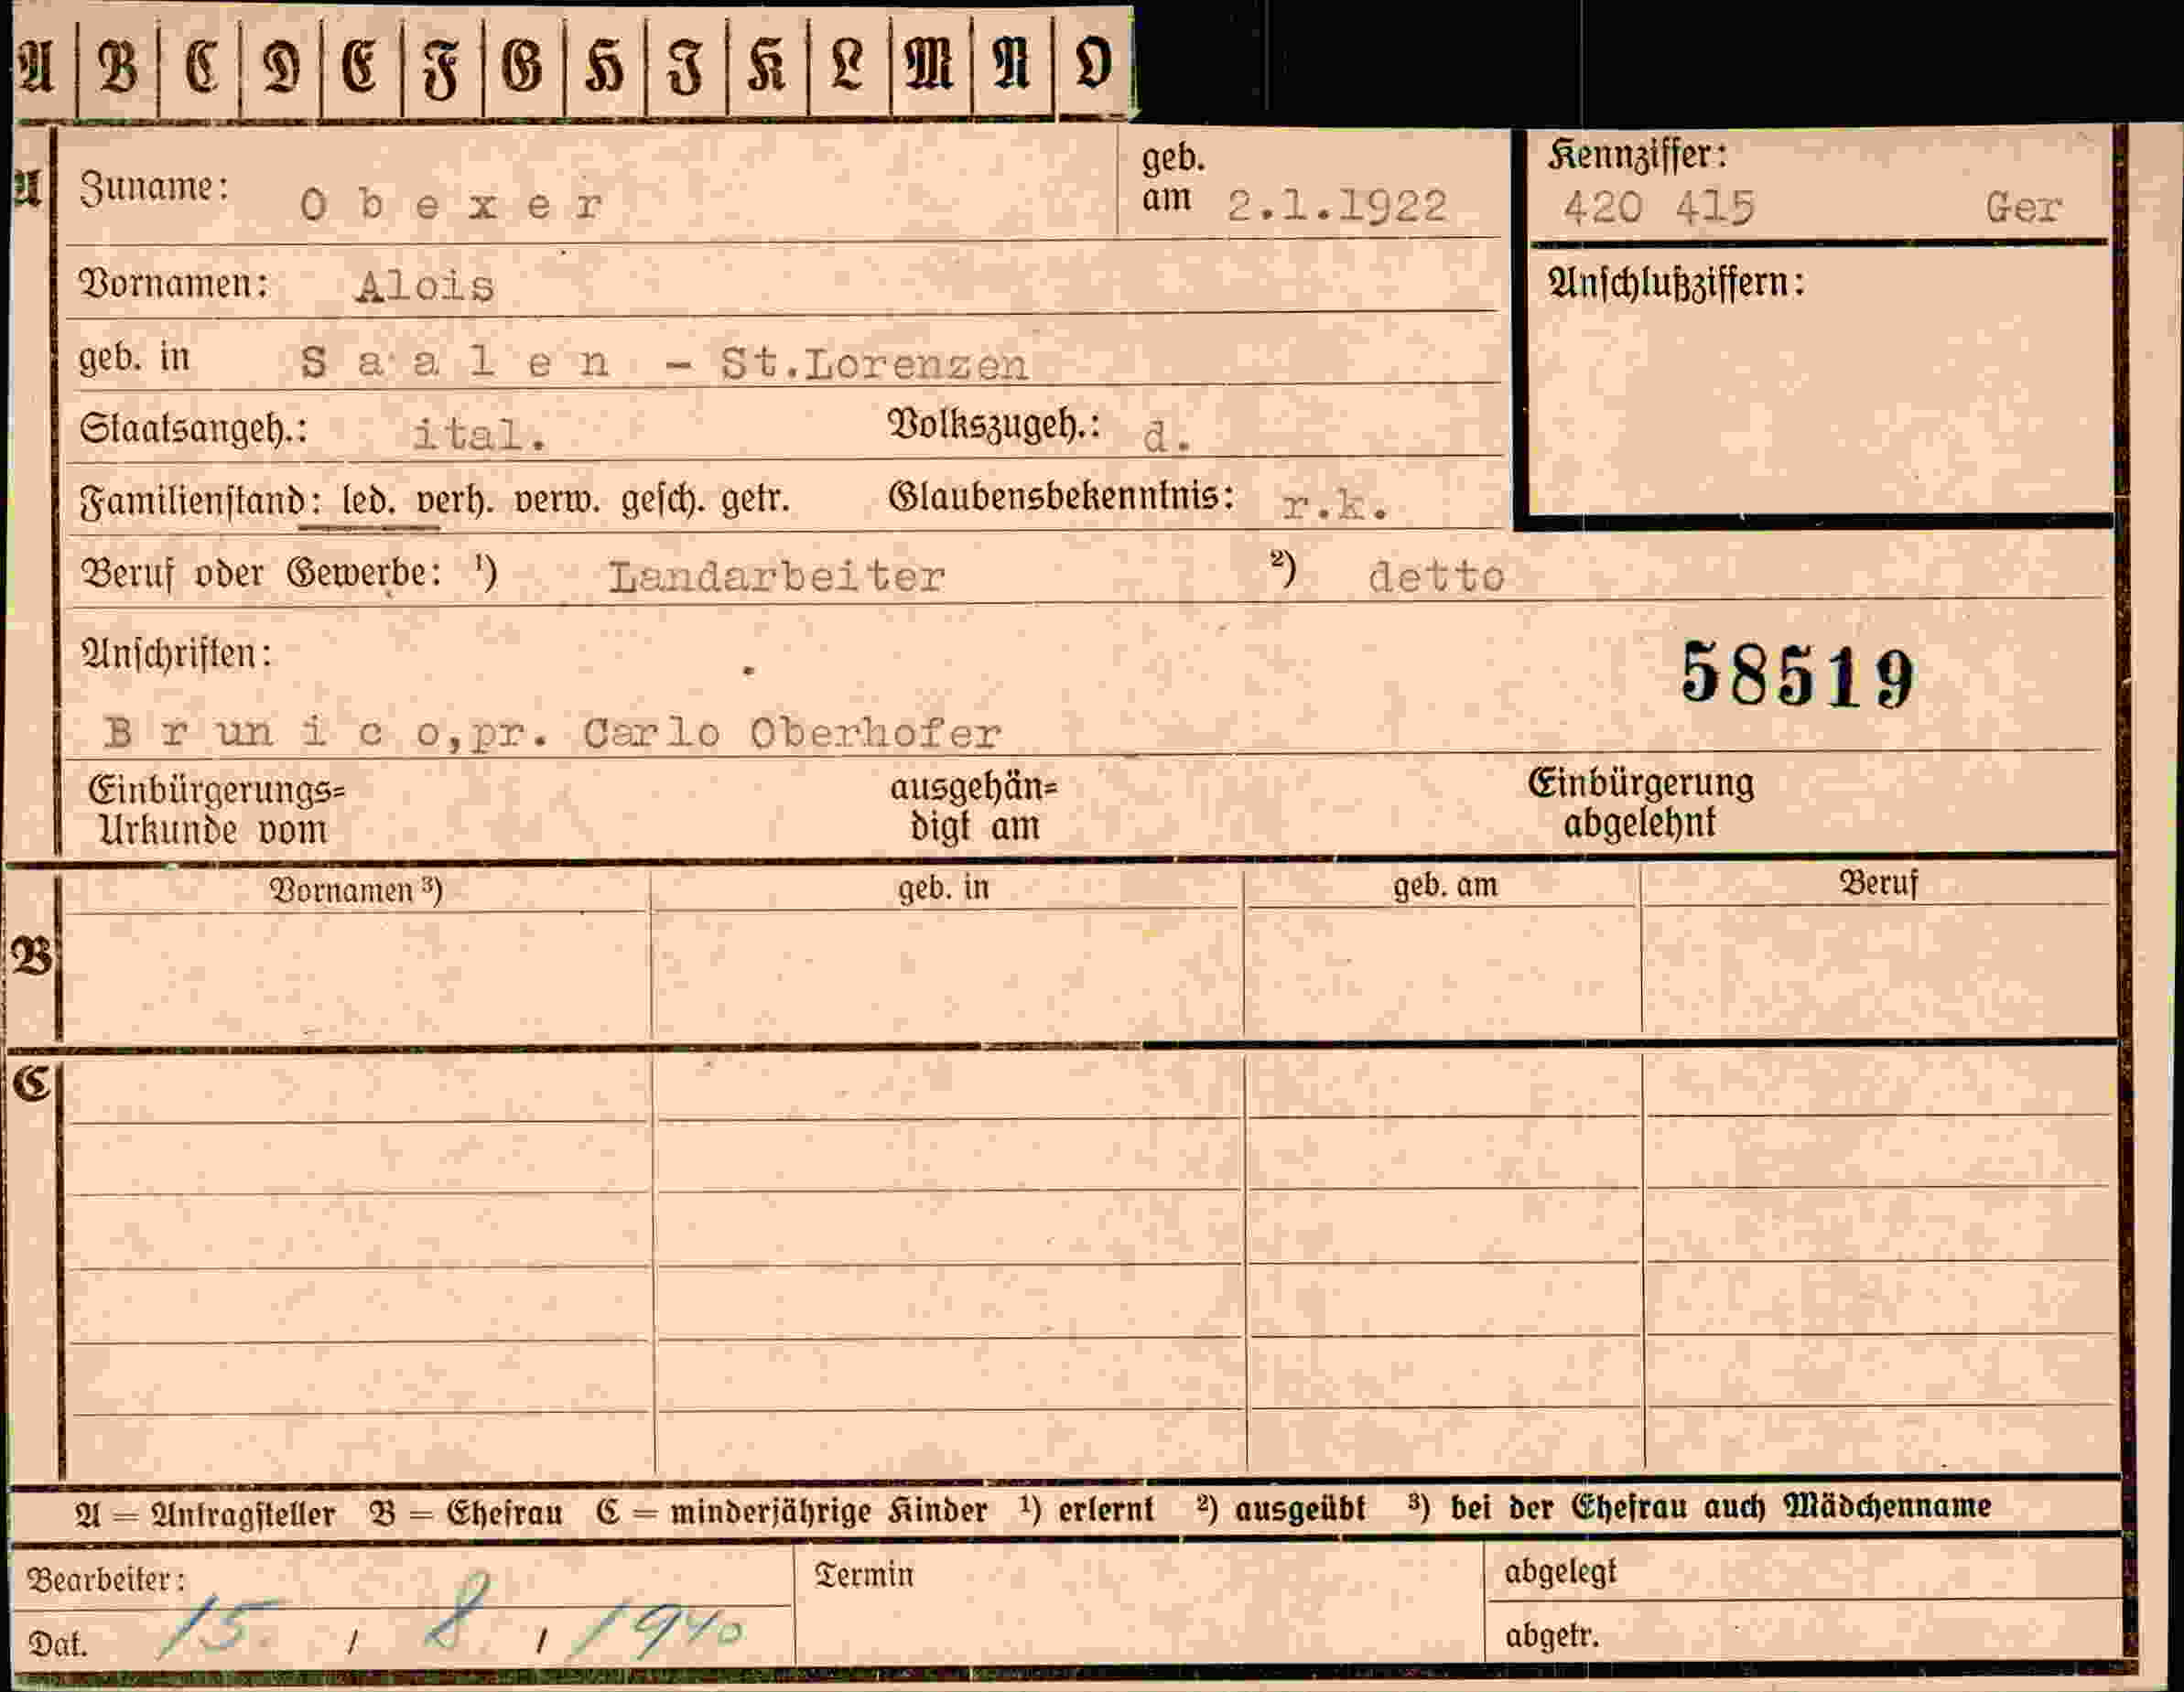 A B C D E F G H I K L M N O
A Zuname: Obexer geb. am 2.1.1922
Kennziffer: 420 415 Ger
Vornamen: Alois
Anschlußziffern:
geb. in Saalen - St.Lorenzen
Staatsangeh.: ital. Volkszugeh.: d.
Familienstand: led. verh. verw. gesch. getr. Glaubensbekenntnis: r.k.
Beruf oder Gewerbe: ¹) Landarbeiter ²) detto
Anschriften:
58519
Brunico,pr. Carlo Oberhofer
Einbürgerungs= ausgehän= Einbürgerung
Urkunde vom digt am abgelehnt
Vornamen ³) geb. in geb. am Beruf
B
C
A = Antragsteller B = Ehefrau C = minderjährige Kinder ¹) erlernt ²) ausgeübt ³) bei der Ehefrau auch Mädchenname
Bearbeiter: Termin abgelegt
Dat. 15. / 8. / 1940 abgetr.